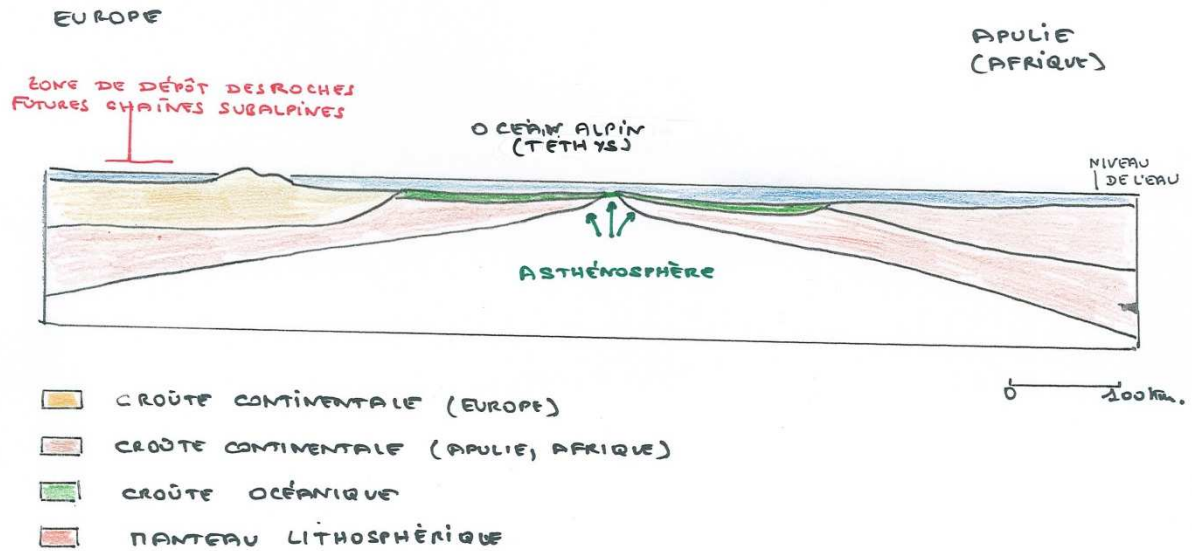 EUROPE
APULIE
(AFRIQUE)
ZONE DE DÉPÔT DES ROCHES
FUTURES CHAÎNES SUBALPINES
OCÉAN ALPIN
(TETHYS)
NIVEAU
DE L'EAU
ASTHÉNOSPHÈRE
0 100 km.
CROÛTE CONTINENTALE (EUROPE)
CROÛTE CONTINENTALE (APULIE, AFRIQUE)
CROÛTE OCÉANIQUE
MANTEAU LITHOSPHÈRIQUE